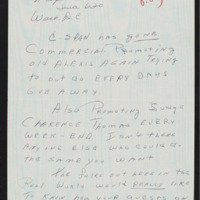 Wash DC
C. SPAN has gone
Commercial. Promoting
old Alexis again trying
to out do EVERY DAYS
Give A way.
Also Promoting Judge
CLARENCE Thomas EVERY
WEEK-END I Isn't there
anyone else who could do
the same you want
The Folks out here in the
Real World would REALLY like
To Know are your guests on